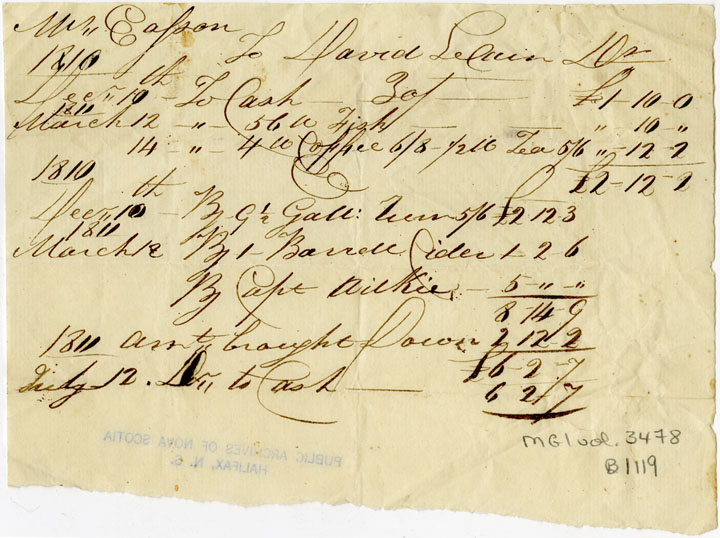 Mr,, Easson
To David LeCain Dr
1810
Decr,, 10th - To Cash - 30/ - £1-10-0
1811
March 12 - ,, - 56 lb Fish - ,, 10 ,,
14 - ,, - 4 lb Coffee 6/8 - 1/2 lb Tea 5/6 ,, - 12 - 2
£2-12-2
1810
Decr,, 10th - By 9½ Gall: Rum 5/6 £2 12 3
1811
March 12 By 1 - Barrell Cider 1 - 2 6
By Capt Wilkie - 5 - ,, - ,,
8-14-9
1811 amt, brought Down 2 12 2
£6-2-7
July 12. Dr,, to Cash - 6 2 7
PUBLIC ARCHIVES OF NOVA SCOTIA
HALIFAX, N. S.
MG1 vol. 3478
B1119